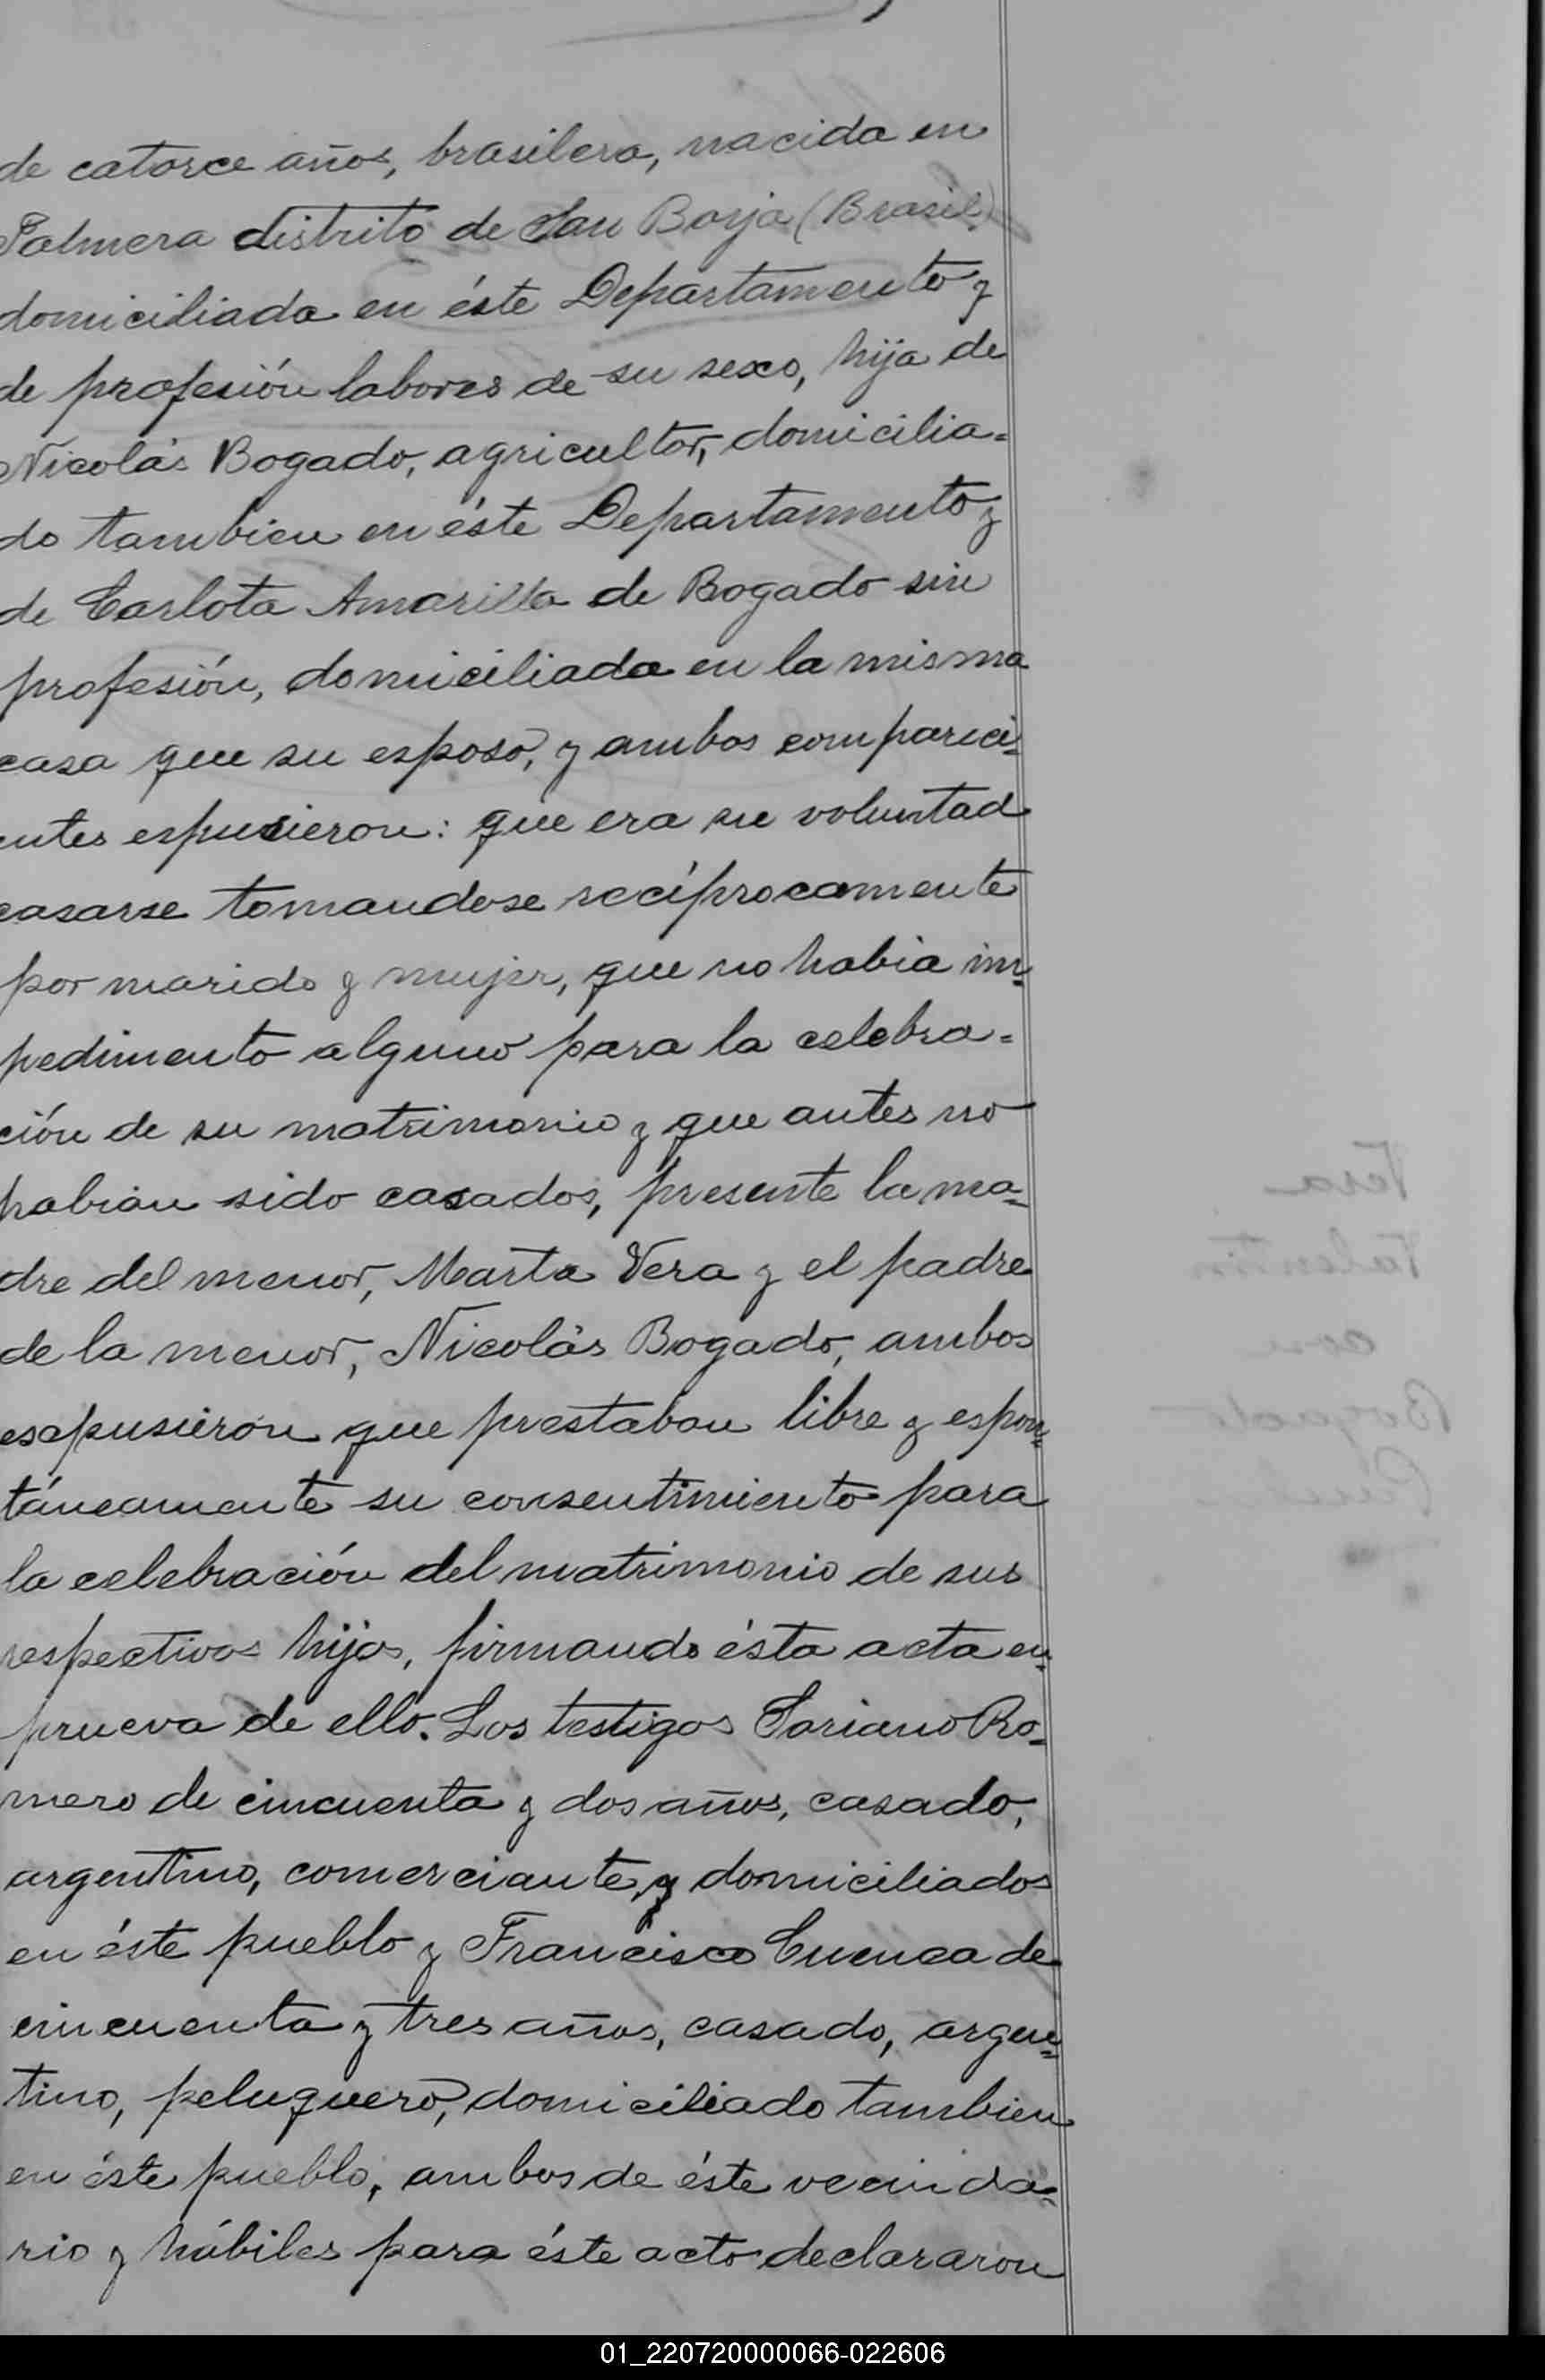 de catorce años, brasilera, nacida en
Palmera distrito de San Borja (Brasil)
domiciliada en éste Departamento y
de profesión labores de su sexo, hija de
Nicolás Bogado, agricultor, domicilia=
do tambien en éste Departamento y
de Carlota Amarilla de Bogado sin
profesión, domiciliada en la misma
casa que su esposo, y ambos compareci=
entes espusieron: que era su voluntad
casarse tomandose recíprocamente
por marido y mujer, que no habia im=
pedimento alguno para la celebra=
ción de su matrimonio y que antes no
habian sido casados, presente la ma=
dre del menor, Marta Vera y el padre
de la menor, Nicolás Bogado, ambos
expusieron que prestaban libre y espon=
táneamente su consentimiento para
la celebración del matrimonio de sus
respectivos hijos, firmando ésta acta en
prueva de ello. Los testigos Ro=
mero de cincuenta y dos años, casado,
argentino, comerciante y domiciliados
en éste pueblo y Francisco Cuenca de
cincuenta y tres años, casado, argen=
tino, peluquero, domiciliado tambien
en éste pueblo, ambos de éste vecinda=
rio y hábiles para éste acto declararon
Vera
Valentin
con
Bogado
01_220720000066-022606